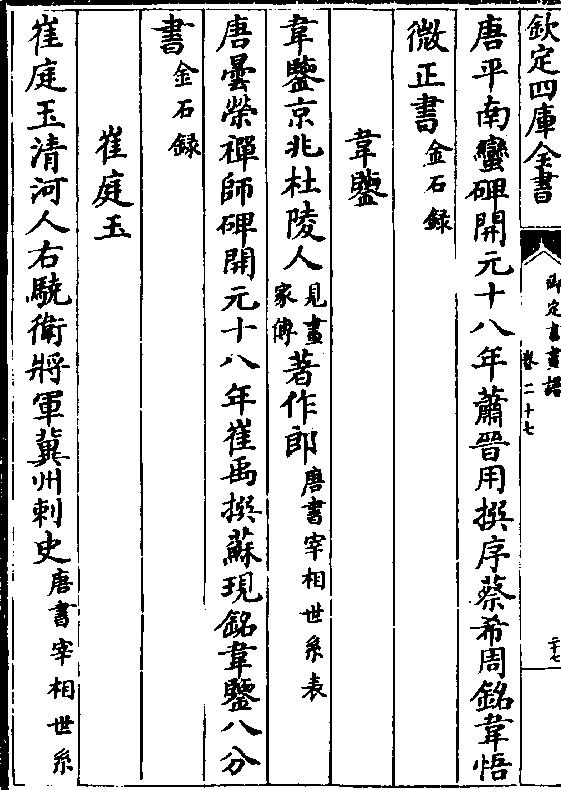 欽定四庫全書
御定書畫譜
卷二十七
二十七
唐平南蠻碑開元十八年蕭晉用撰序蔡希周銘韋悟
微正書金石録
韋鑒
韋鑒京兆杜陵人見畫家傳著作郎唐書宰相世系表
唐曇榮禪師碑開元十八年崔禹撰蘇現銘韋鑒八分
書金石録
崔庭玉
崔庭玉清河人右驍衛將軍冀州刺史唐書宰相世系